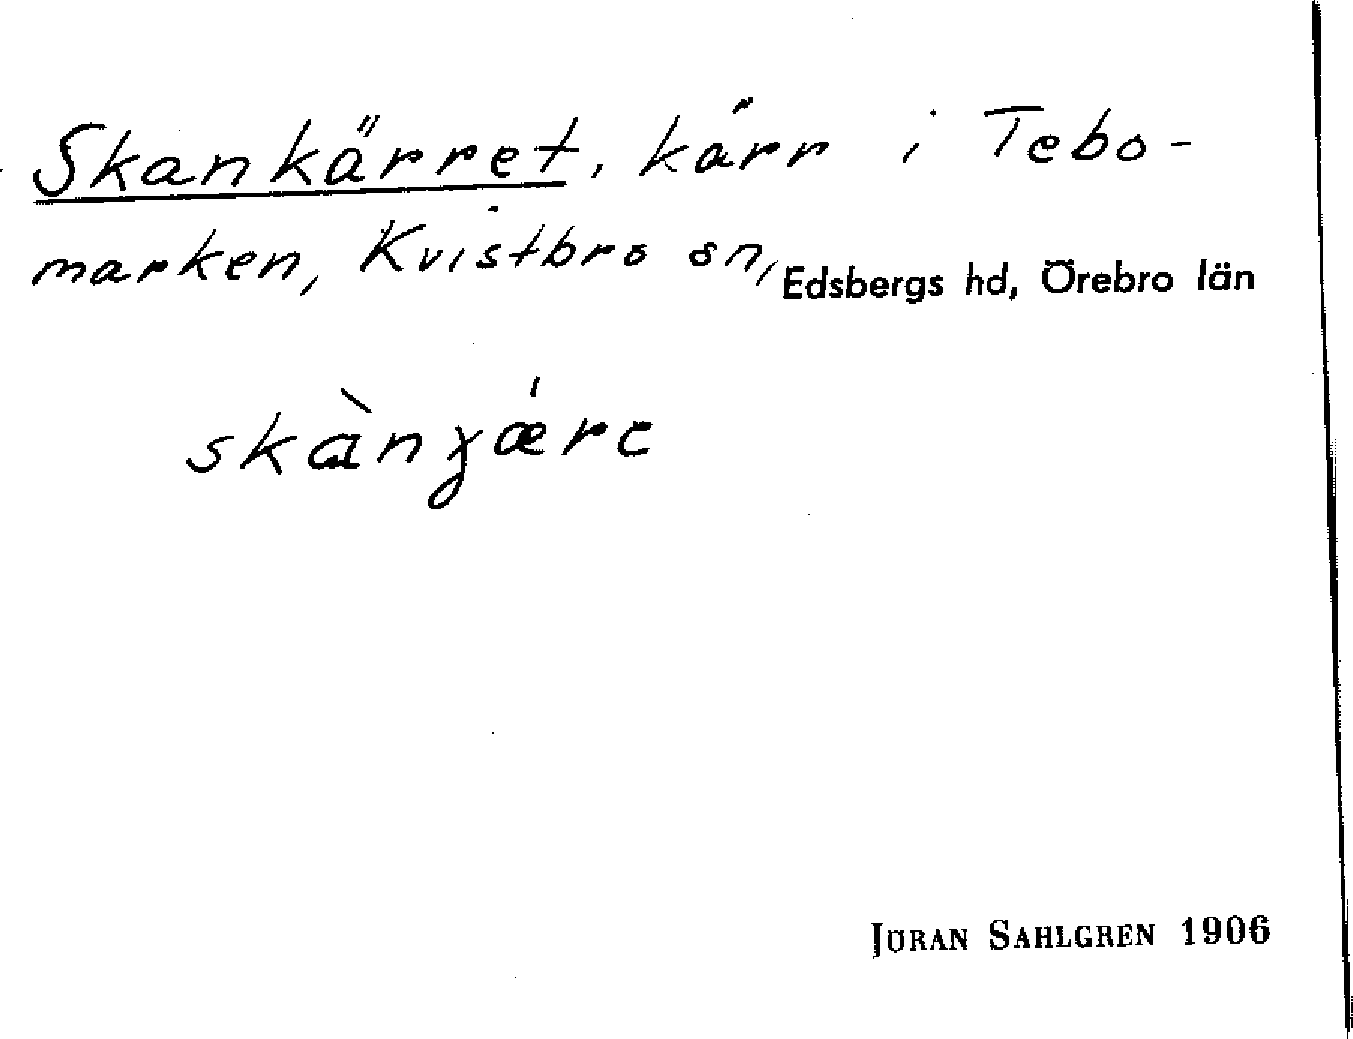 Skankärret, kärr i Tebo-
marken, Kvistbro sn, Edsbergs hd, Örebro län
skànɣǽre
JÖRAN SAHLGREN 1906